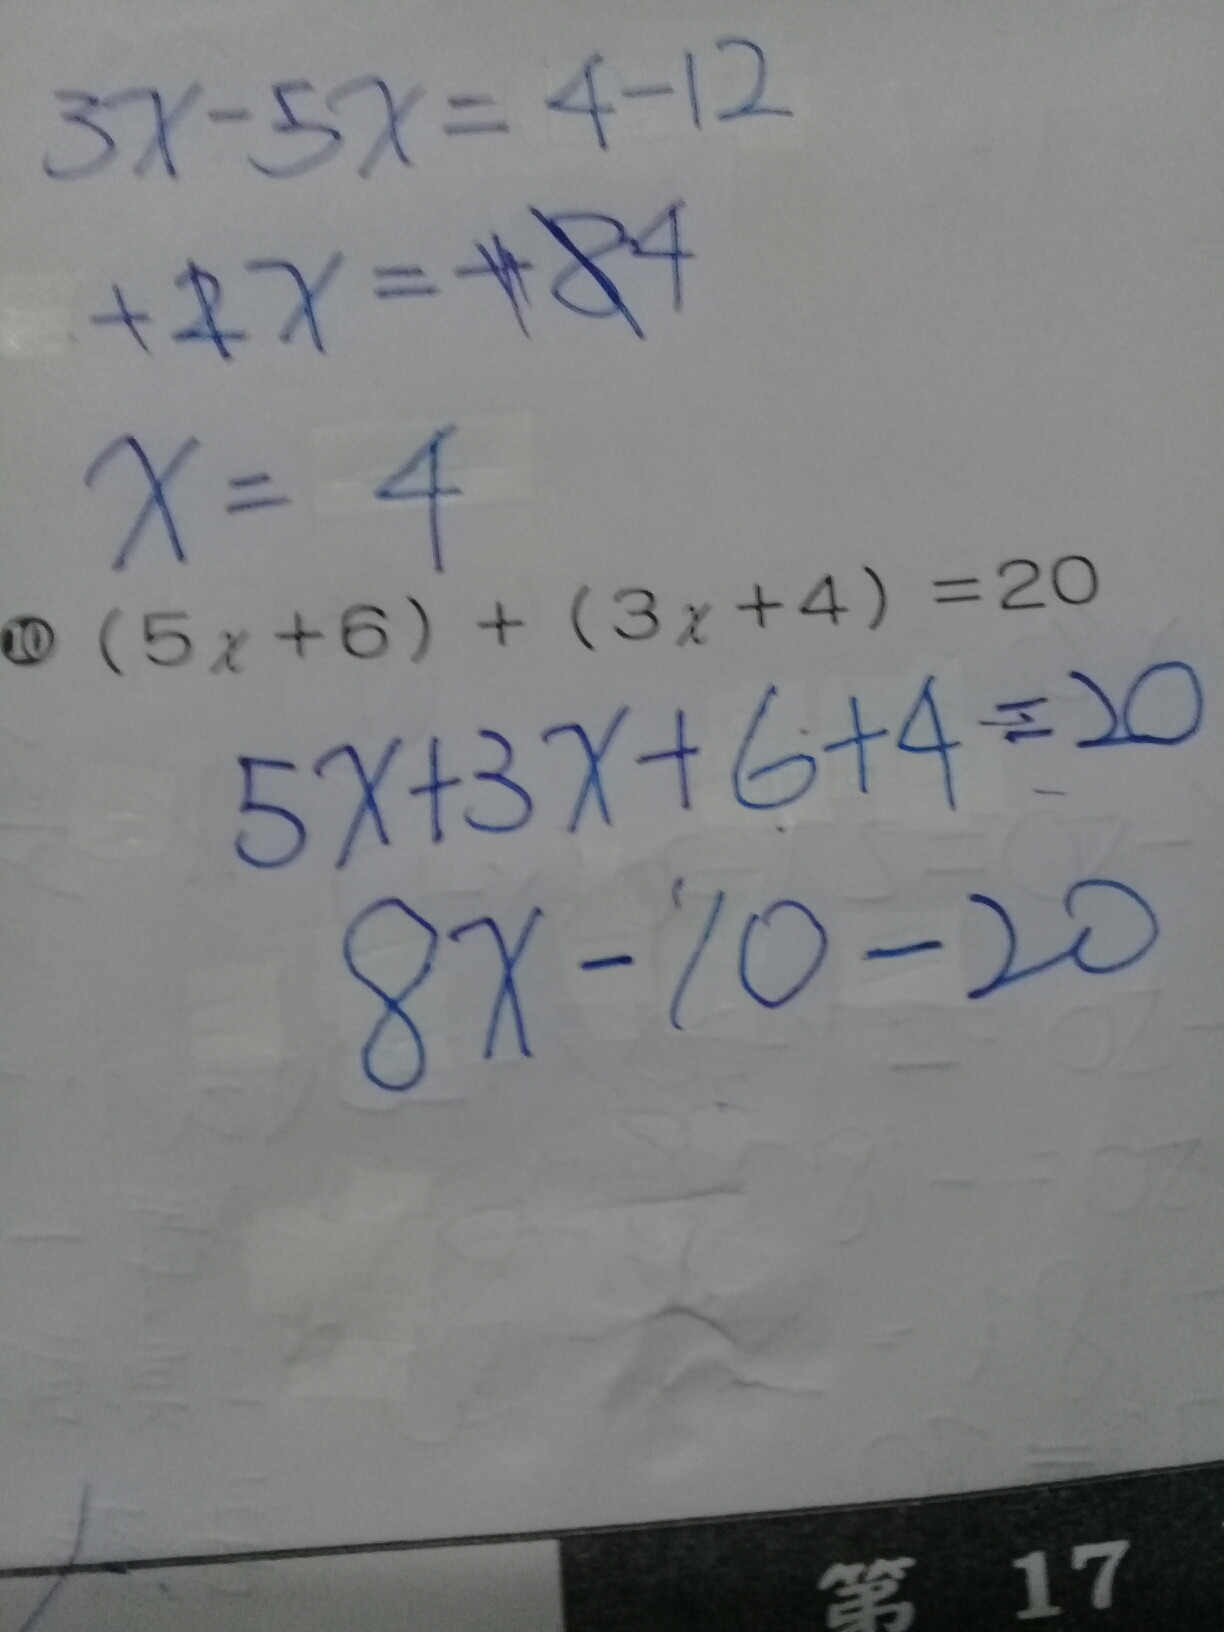 3x-5x=4-12
x=4
⑩ (5x+6)+(3x+4)=20
5x+3x+6+4=20
8x-10-20
第 17